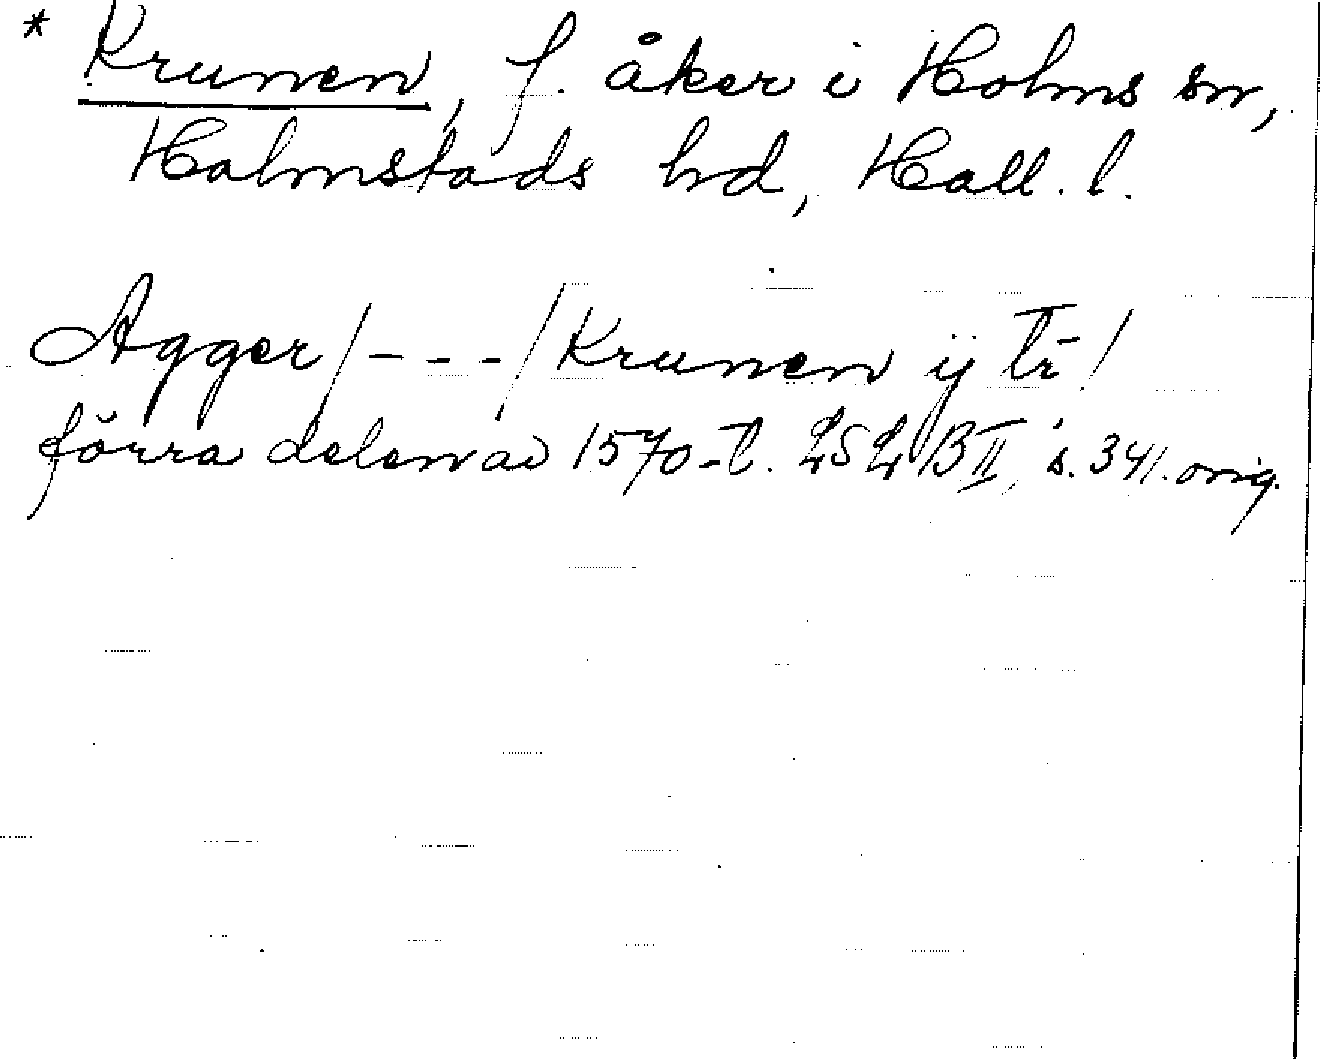 * Krunen, f. åker i Holms sn,
Halmstads hd, Hall. l.
Agger /- - -/ Krunen ij tr̄ /
förra delen av 1570-t. LSLB II, s. 341. orig.